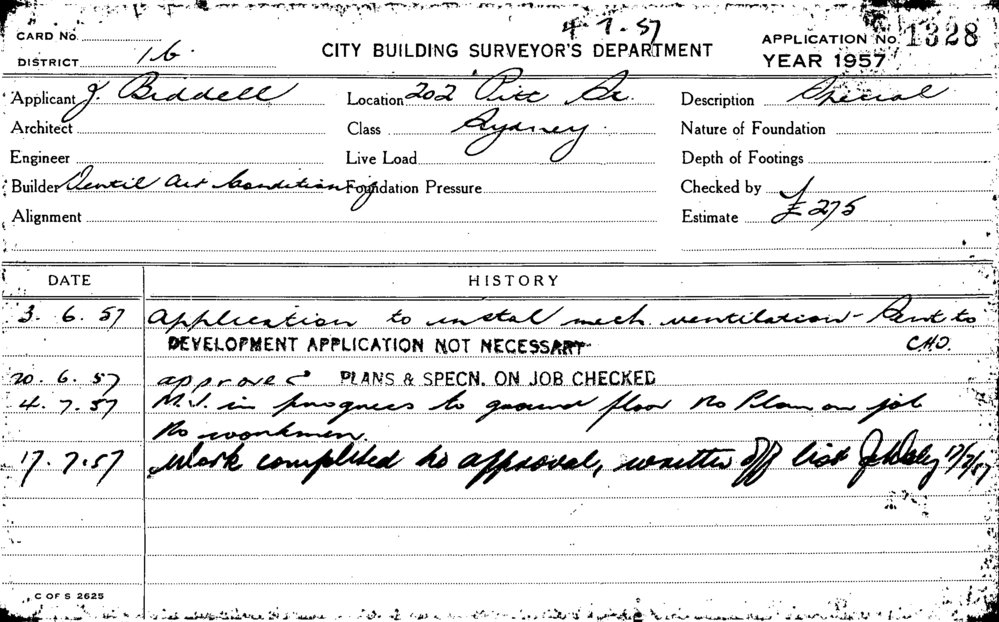 4.7.57
CARD No
DISTRICT 16.
CITY BUILDING SURVEYOR'S DEPARTMENT
APPLICATION No 1328
YEAR 1957
Applicant J. Biddell Location 202 Pitt St. Description Special
Architect Class Sydney Nature of Foundation
Engineer Live Load Depth of Footings
Builder Ventil Air Conditioning Foundation Pressure Checked by
Alignment Estimate £275
DATE HISTORY
3. 6. 57 Application to instal mech. ventilation - Sent to
DEVELOPMENT APPLICATION NOT NECESSARY C.H.O.
20. 6. 57 approved PLANS & SPECN. ON JOB CHECKED
4. 7. 57 M.V. in progress to ground floor No Plan on job
No workmen.
17. 7. 57 Work completed to approval, written off list 17/7/57
C OF S 2625